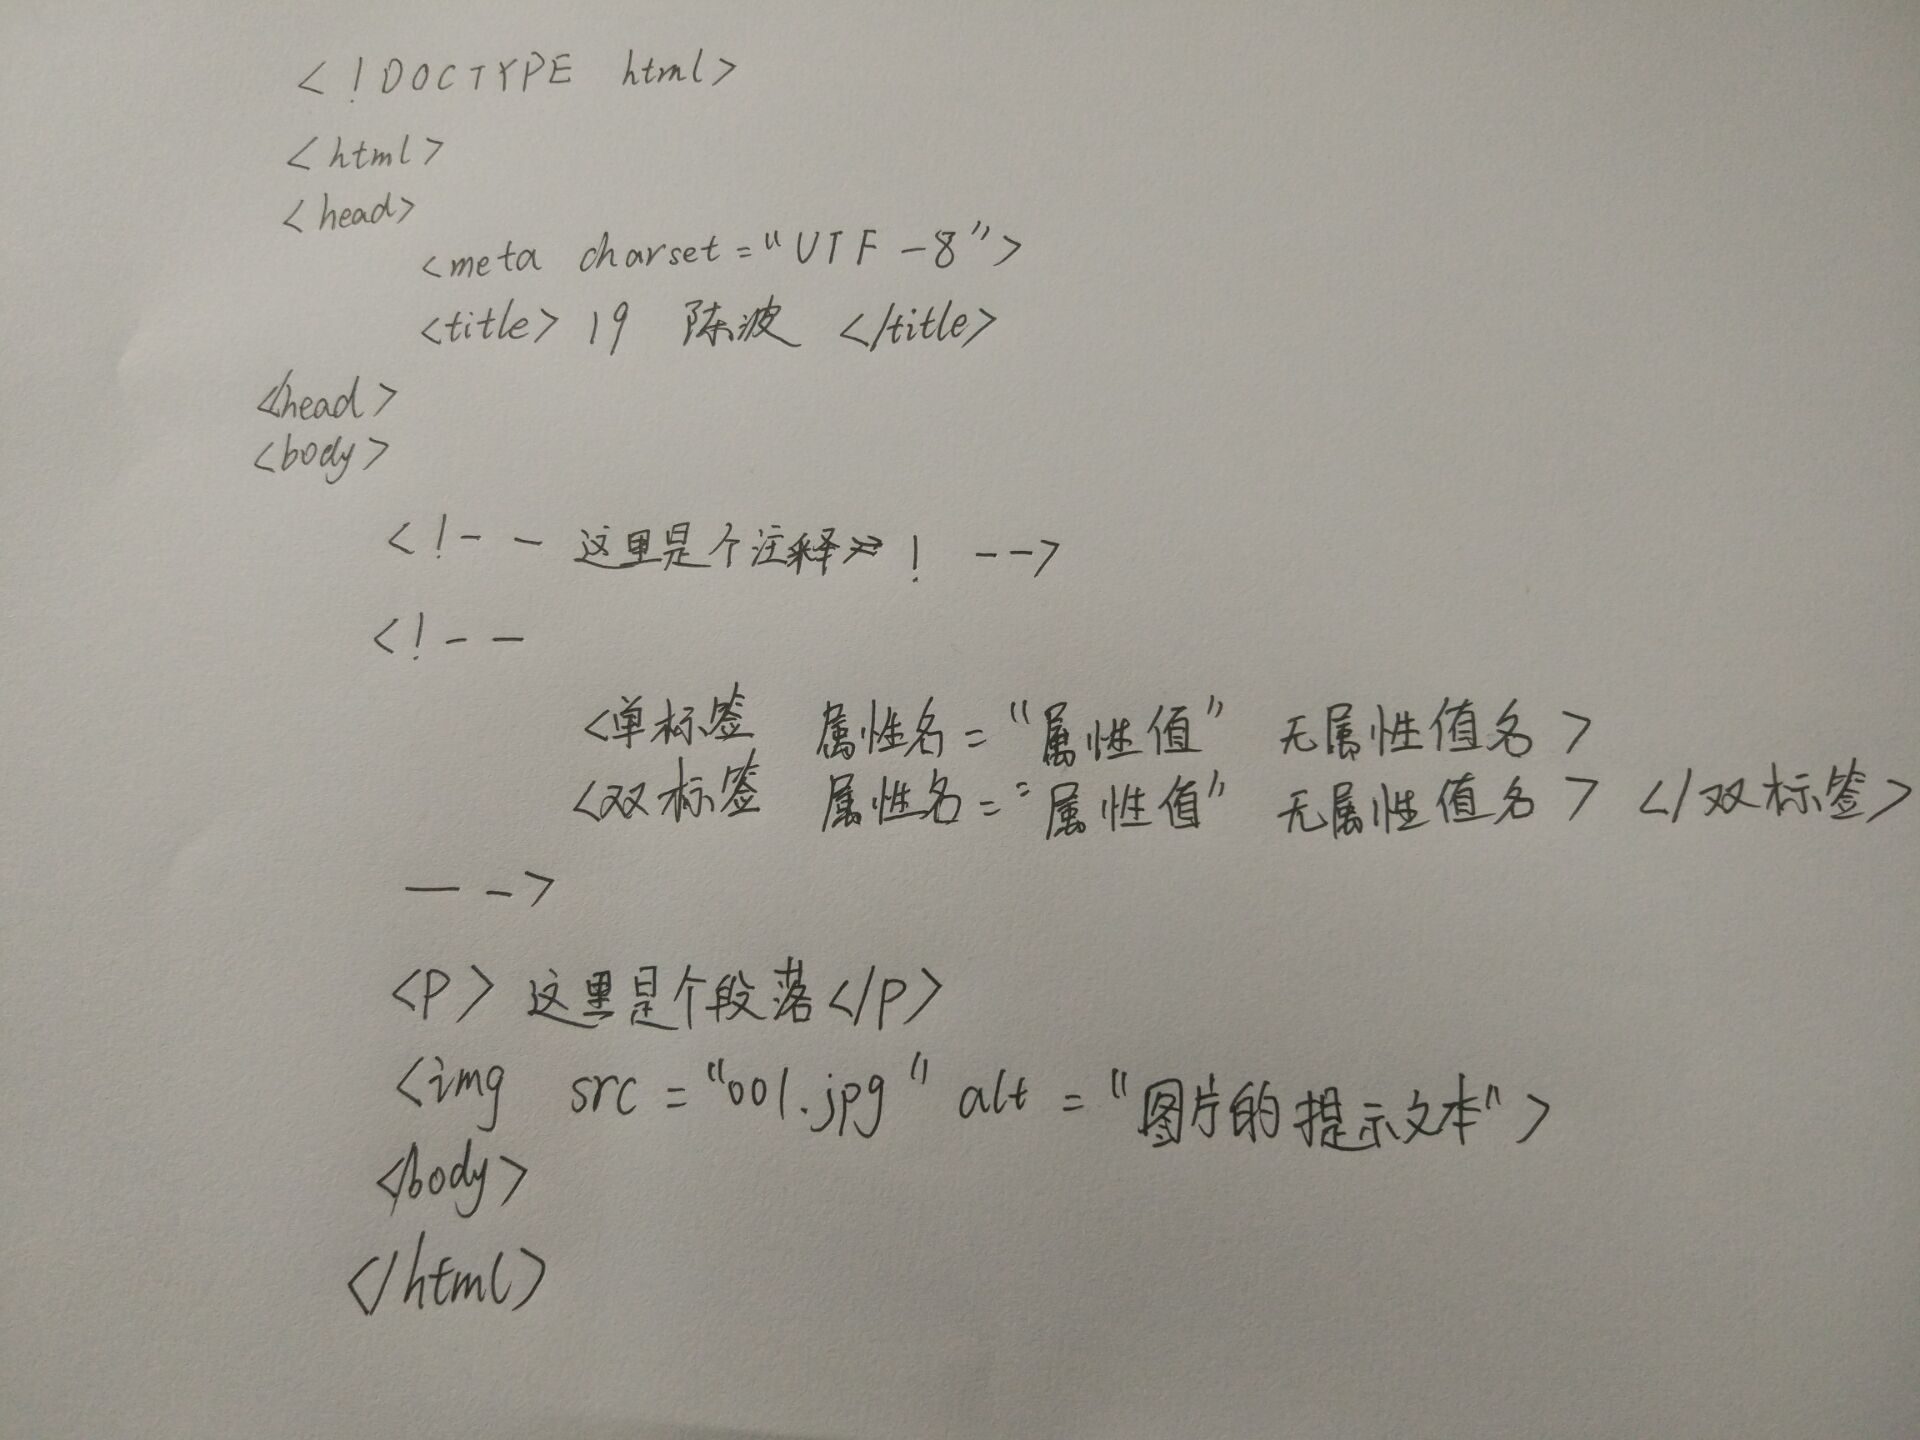 <!DOCTYPE html>
<html>
<head>
<meta charset="UTF-8">
<title> 19 陈波 </title>
</head>
<body>
<!-- 这里是个注释 ! -->
<!--
<单标签 属性名="属性值" 无属性值名>
<双标签 属性名="属性值" 无属性值名> </双标签>
-->
<p> 这里是个段落</p>
<img src="001.jpg" alt="图片的提示文本">
</body>
</html>